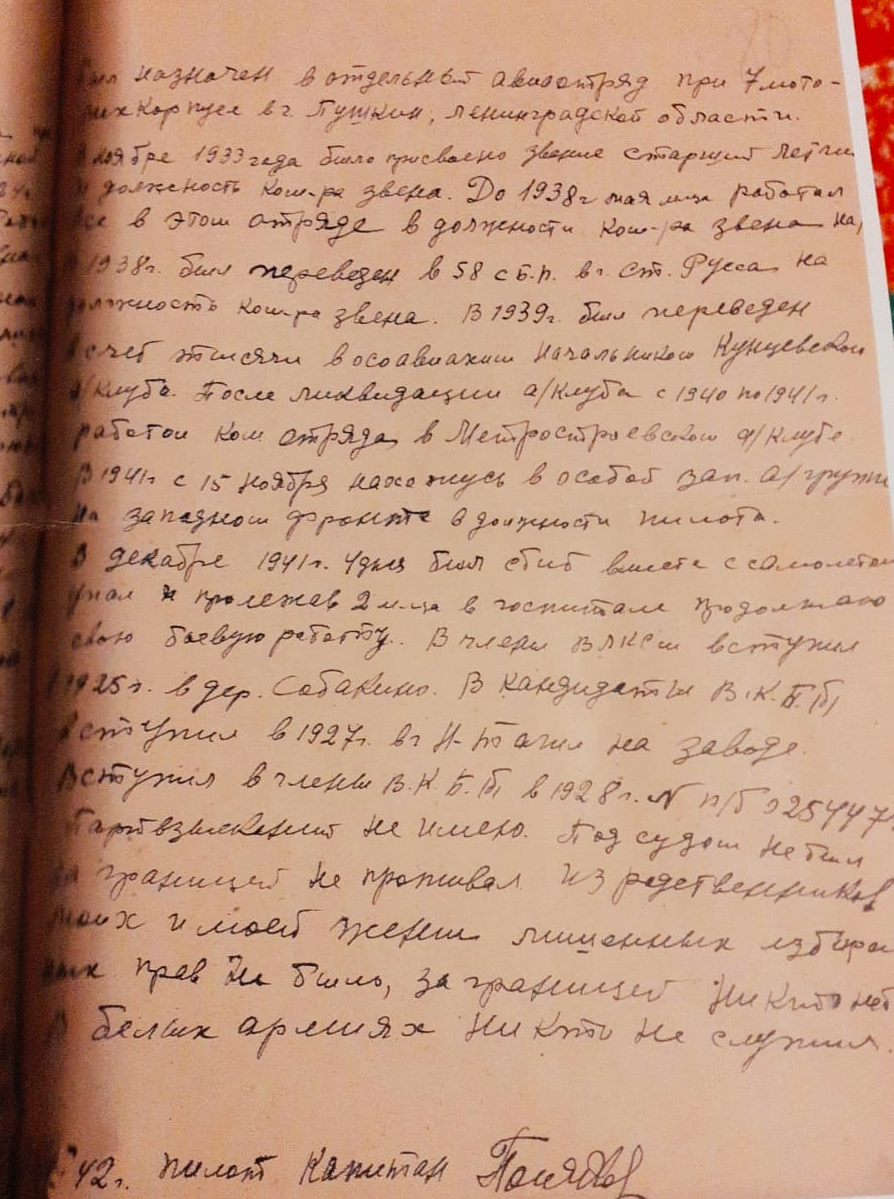 был назначен в отдельный авиаотряд при 7 мото-
мехкорпусе в г. Пушкин, Ленинградской области.
В ноябре 1933 года было присвоено звание старший летчик
и должность ком-ра звена. До 1938 г мая м-ца работал
все в этом отряде в должности ком-ра звена на,
В 1938 г. был переведен в 58 с б.п. в г. Ст. Русса на
должность ком-ра звена. В 1939 г. был переведен
в счет тысячи в осоавиахим начальником Кунцевского
а/клуба. После ликвидации а/клуба с 1940 по 1941 г.
работал ком отряда в Метростроевском а/клубе
В 1941 г с 15 ноября нахожусь в особой зап. а/группе
на западном фронте в должности пилота.
В декабре 1941 г. был сбит вместе с самолетом
упал и пролежав 2 м-ца в госпитале продолжаю
свою боевую работу. В члены ВЛКСМ вступил
в 1925 г. в дер. Собакино. В кандидаты В.К.П.б
вступил в 1927 г. в г Н-Тагил на заводе.
Вступил в члены В.К.П.б в 1928 г. N п/б
Партвзысканий не имею. Под судом не был
за границей не проживал из родственников
моих и моей жены лишенных избира
ных прав не было, за границей никого нет
В белых армиях никто не служил.
42 г. пилот капитан